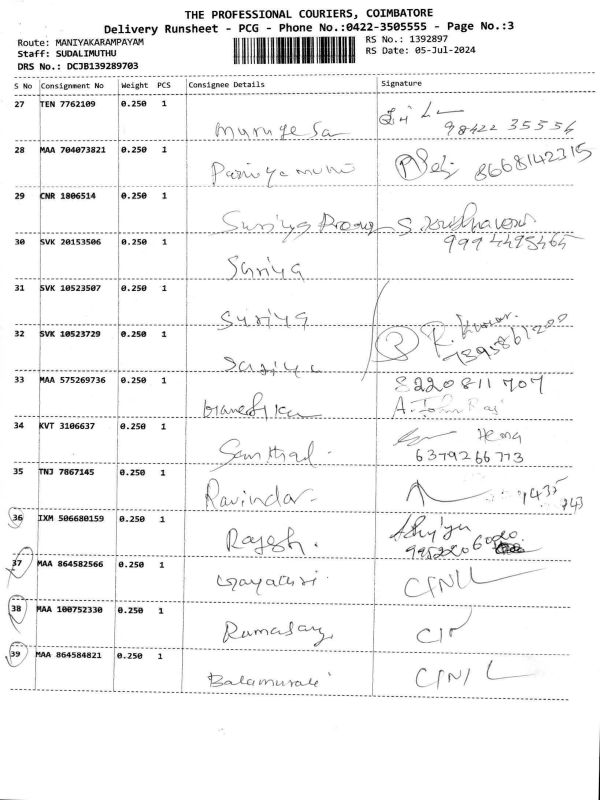 THE PROFESSIONAL COURIERS, COIMBATORE
Delivery Runsheet - PCG - Phone No.:0422-3505555 - Page No.:3
Route: MANIYAKARAMPAYAM RS No.: 1392897
Staff: SUDALIMUTHU RS Date: 05-Jul-2024
DRS No.: DCJB139289703
S No Consignment No Weight PCS Consignee Details Signature
27 TEN 7762109 0.250 1
Murugesa 98422 35556
28 MAA 704073821 0.250 1
8668142315
29 CNR 1806514 0.250 1
Suriya
30 SVK 20153506 0.250 1 9994495465
Suriya
31 SVK 10523507 0.250 1
Suriya R. Kumar
32 SVK 10523729 0.250 1 2
Suriya
33 MAA 575269736 0.250 1 8220811707
A. John Raj
34 KVT 3106637 0.250 1 Hema
6379266773
35 TNJ 7867145 0.250 1
Ravindar
36 IXM 506680159 0.250 1
Rajesh.
37 MAA 864582566 0.250 1
Gayathri
38 MAA 100752330 0.250 1
Ramasamy
39 MAA 864584821 0.250 1
Balamurali